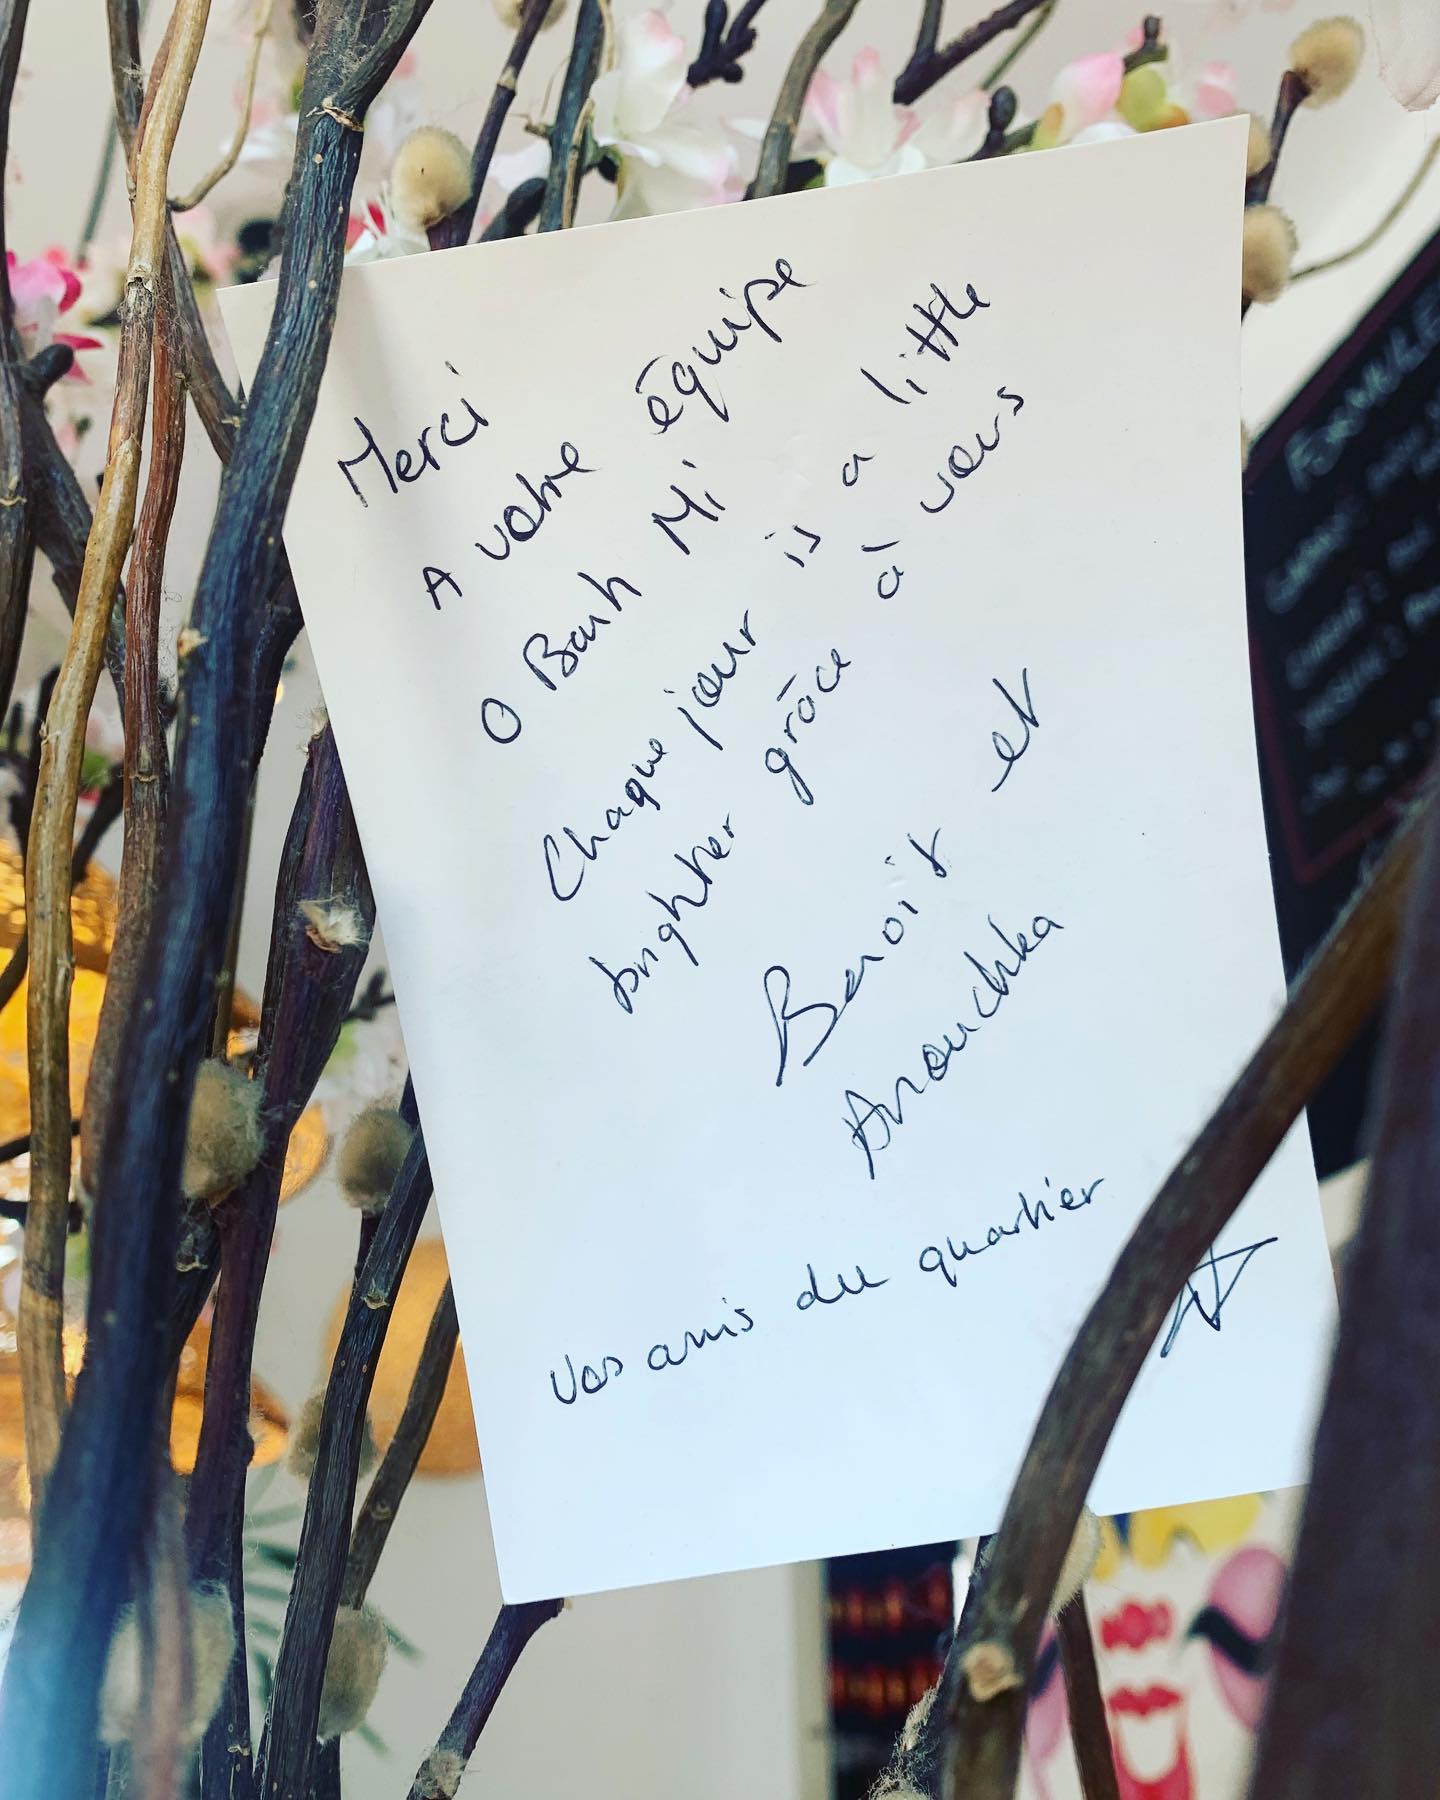 Merci
A votre équipe
O Banh Mi
Chaque jour is a little
brighter grâce à vous
Benoit et
Anouchka
Vos amis du quartier
FORMULE